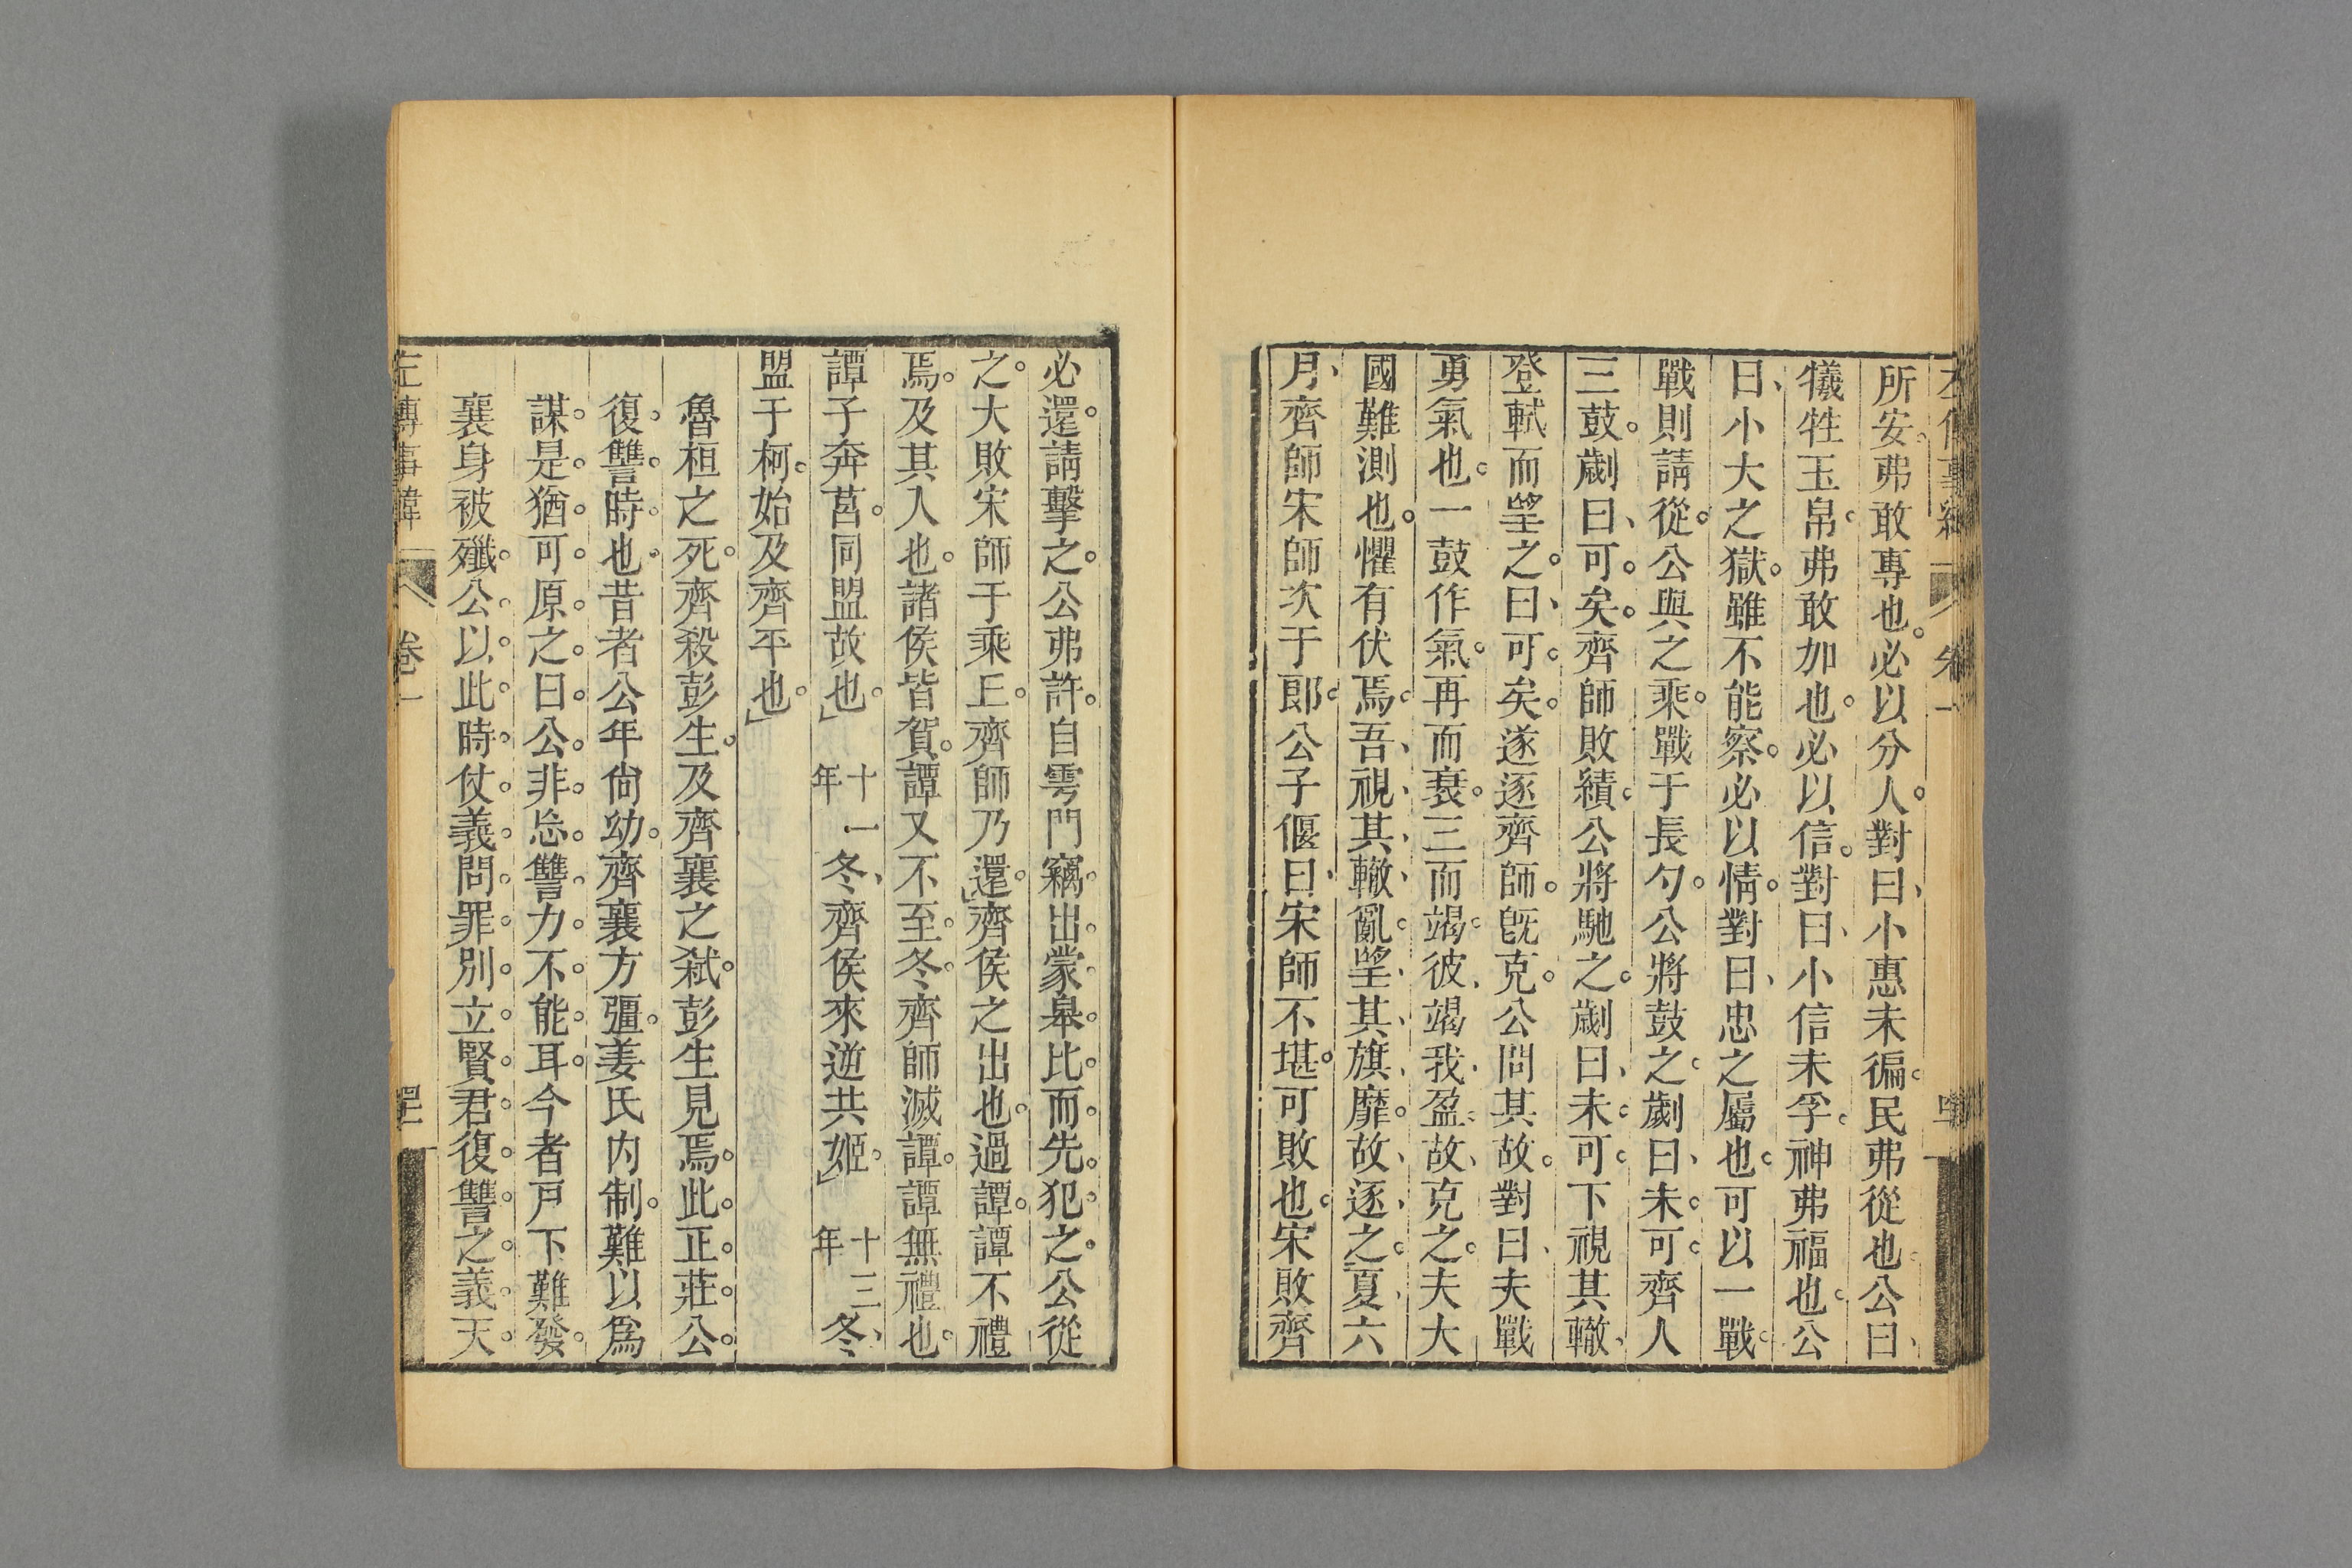 所安弗敢專也必以分人對曰小惠未徧民弗從也公曰
犧牲玉帛弗敢加也必以信對曰小信未孚神弗福也公
曰小大之獄雖不能察必以情對曰忠之屬也可以一戰
戰則請從公與之乘戰于長勺公將鼓之劌曰未可齊人
三鼓劌曰可矣齊師敗績公將馳之劌曰未可下視其轍
登軾而望之曰可矣遂逐齊師旣克公問其故對曰夫戰
勇氣也一鼓作氣再而衰三而竭彼竭我盈故克之夫大
國難測也懼有伏焉吾視其轍亂望其旗靡故逐之夏六
月齊師宋師次于郎公子偃曰宋師不堪可敗也宋敗齊
必還請擊之公弗許自雩門竊出蒙皋比而先犯之公從
之大敗宋師于乘丘齊師乃還齊侯之出也過譚譚不禮
焉及其入也諸侯皆賀譚又不至冬齊師滅譚譚無禮也
譚子奔莒同盟故也 十一年 冬齊侯來逆共姬 十三年 冬
盟于柯始及齊平也
魯桓之死齊殺彭生及齊襄之弒彭生見焉此正莊公
復讐時也昔者公年尙幼齊襄方彊姜氏內制難以爲
謀是猶可原之曰公非忘讐力不能耳今者戸下難發
襄身被殲公以此時仗義問罪別立賢君復讐之義天
左傳事緯 卷一